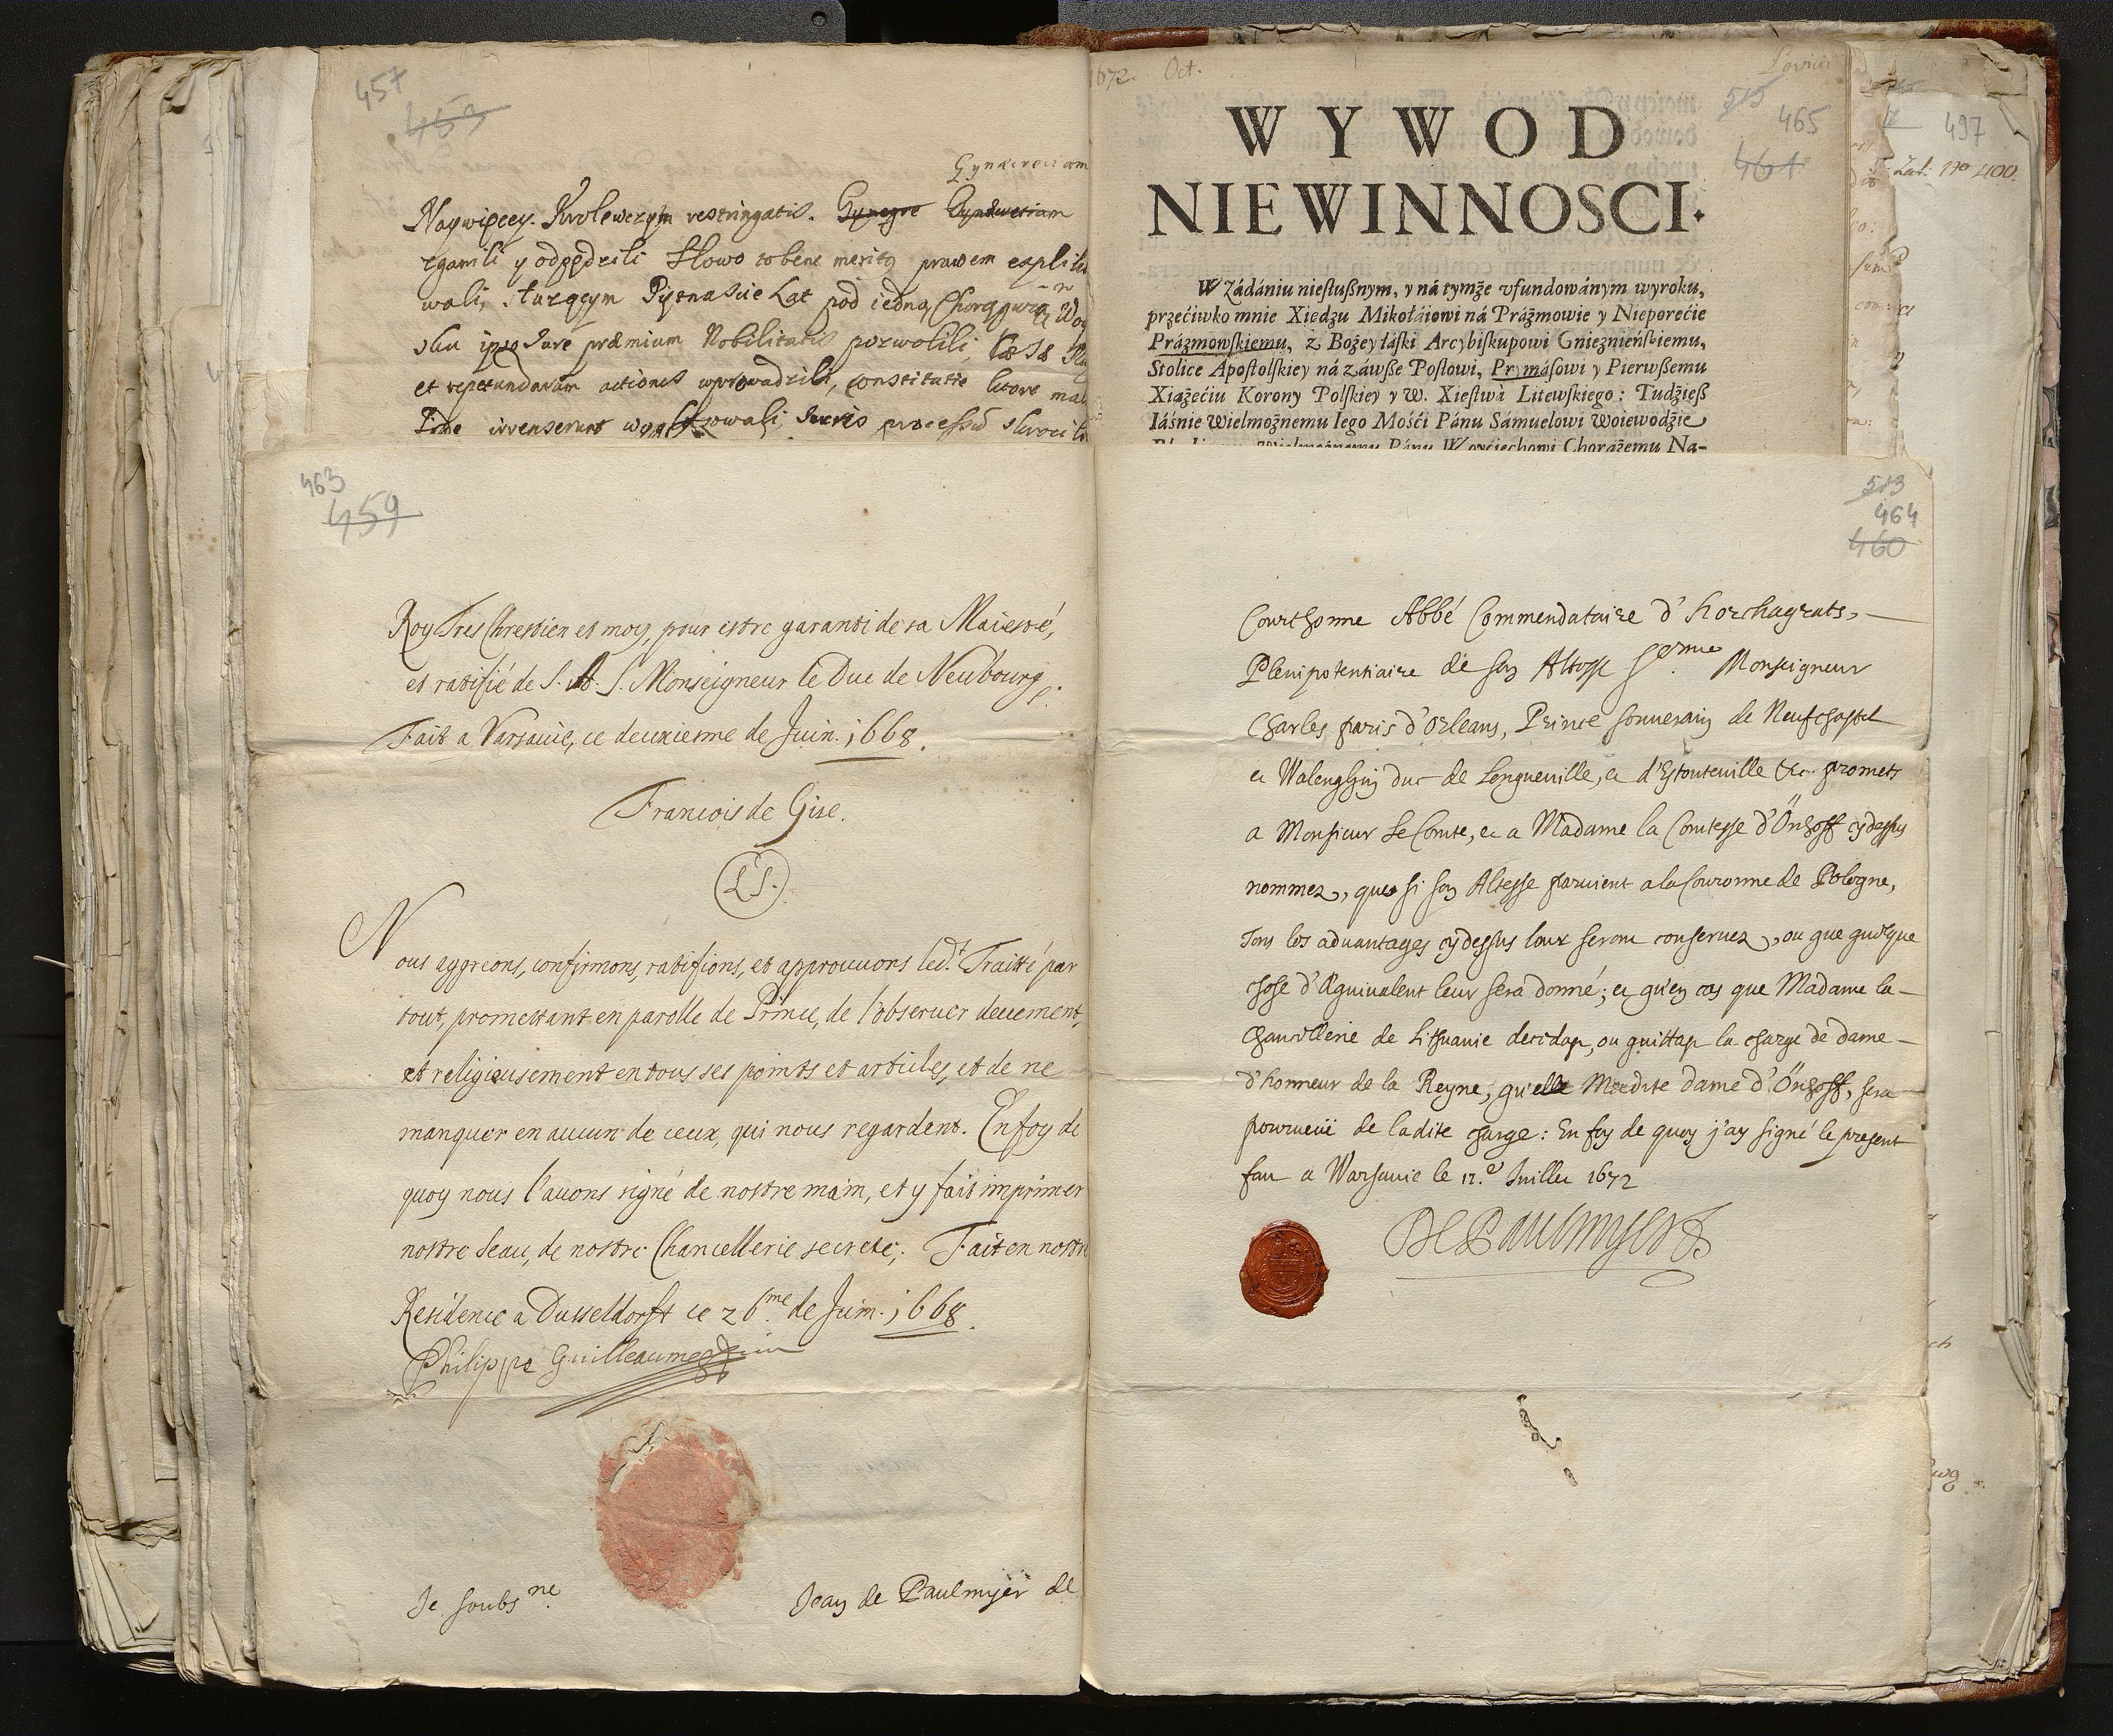 457
453
Gynaeceiam
Naywięcey. Krolewczym restringatis. Gynegre Gynaecetiam
zganili y odpędzili Słowo to bene meritg prawem expliko
wali, sturącym Piętnascie Lat pod iedną Chorągwią Woy
sku ipso Jure præmium Nobilitatis pozwolili,
et repetundarum actiones wprowadzili,
processus skroci
463
459
Roy Tres Chrestien et moy, pour estre garanti de sa Maiesté,
et ratifié de S. A. S. Monseigneur le Duc de Neubourg.
Fait a Varsavie, ce deuxiesme de Juin. 1668.
Francois de Gise.
L.S.
Nous aggreons, confirmons, ratifions, et approuvons led.t Traitté par
tout, promettant en parolle de Prince, de l'observer deuement,
et religieusement en tous ses points et articles, et de ne
manquer en aucun de ceux, qui nous regardent. En foy de
quoy nous l'avons signé de nostre main, et y fait imprimer
nostre Seau, de nostre Chancellerie secrete; Fait en nostre
Residence a Dusseldorft ce 26.me de Juin. 1668.
Philippe Guilleaume
Je soubs.ne Jean de Paulmyer de
1672. Oct.
Lovicii
515
465
461
WYWOD
NIEWINNOSCI.
W Zádániu niesłusznym, y ná tymże vfundowánym wyroku,
przećiwko mnie Xiedzu Mikołáiowi ná Prázmowie y Nieporećie
Prázmowskiemu, z Bożey łáski Arcybiskupowi Gnieznieńskiemu,
Stolice Apostolskiey ná záwsze Posłowi, Prymásowi y Pierwszemu
Xiążećiu Korony Polskiey y W. Xiestwá Litewskiego: Tudzież
Iáśnie Wielmożnemu Iego Mośći Pánu Sámuelowi Woiewodzie
Wielmożnemu Pánu Woyćiechowi Chorążemu Na-
497
Zal. no 400.
513
464
460
Courthonne Abbé Commendataire d'horchagrats,
Plenipotentiaire de son Altesse Serme. Monseigneur
Charles paris d'Orleans, Prince souuerain de Neufchastel
et Walenghin duc de Longueuille, et d'Estouteuille &c. promets
a Monsieur le Comte, et a Madame la Comtesse d'Önhoff cy dessus
nommez, que si son Altesse paruient a la Couronne de Pologne,
Tous les aduantages cy dessus leur seront conseruez, ou que quelque
chose d'Equiualent leur sera donné; et qu'en cas que Madame la
Chancellerie de Lithuanie decedap, ou quittap la charge de dame
d'honneur de la Reyne, qu'elle Madite dame d'Önhoff, sera
pourueüe de ladite charge: En foy de quoy j'ay signé le present
fait a Warsauie le 12.e Juillet 1672
De Paulmyer